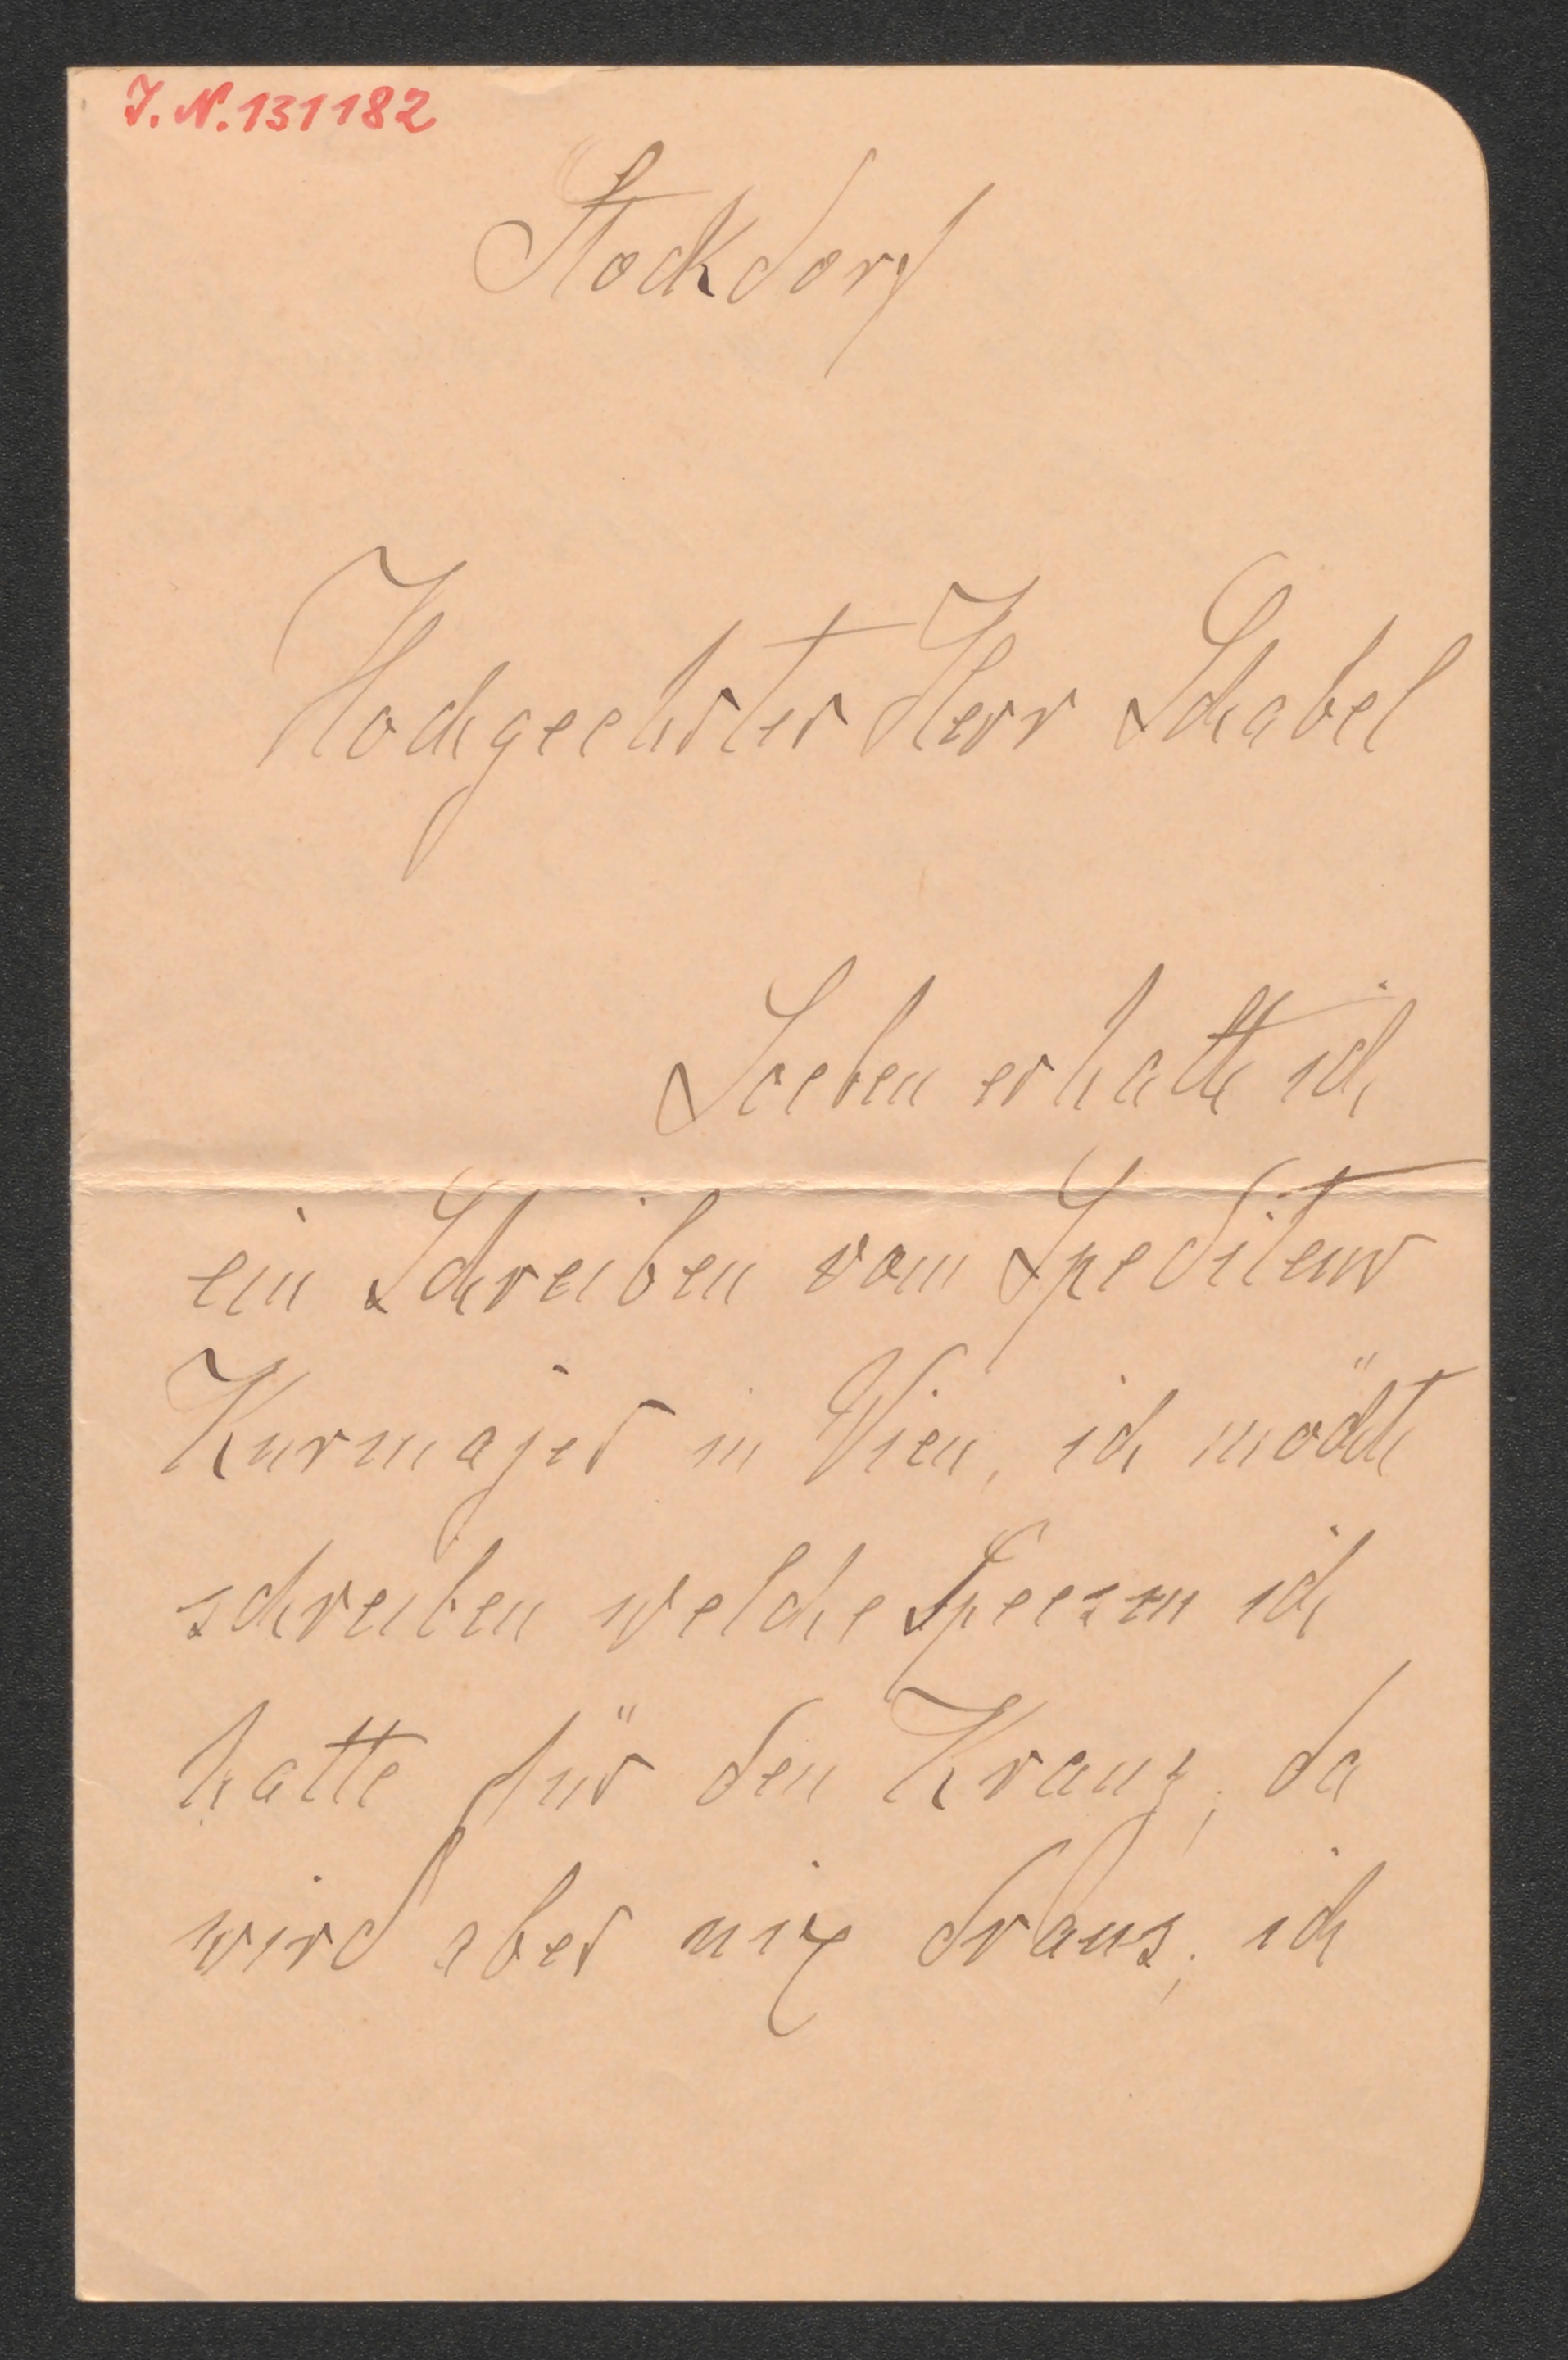 J. N. 131182
Stockdorf
Hochgeehrter Herr Schabel
Soeben erhatte ich
ein Schreiben vom Spediteur
Kurmajer in Wien, ich möchte
schreiben welche Speesen ich
hatte für den Kranz, da
wird aber nix draus, ich